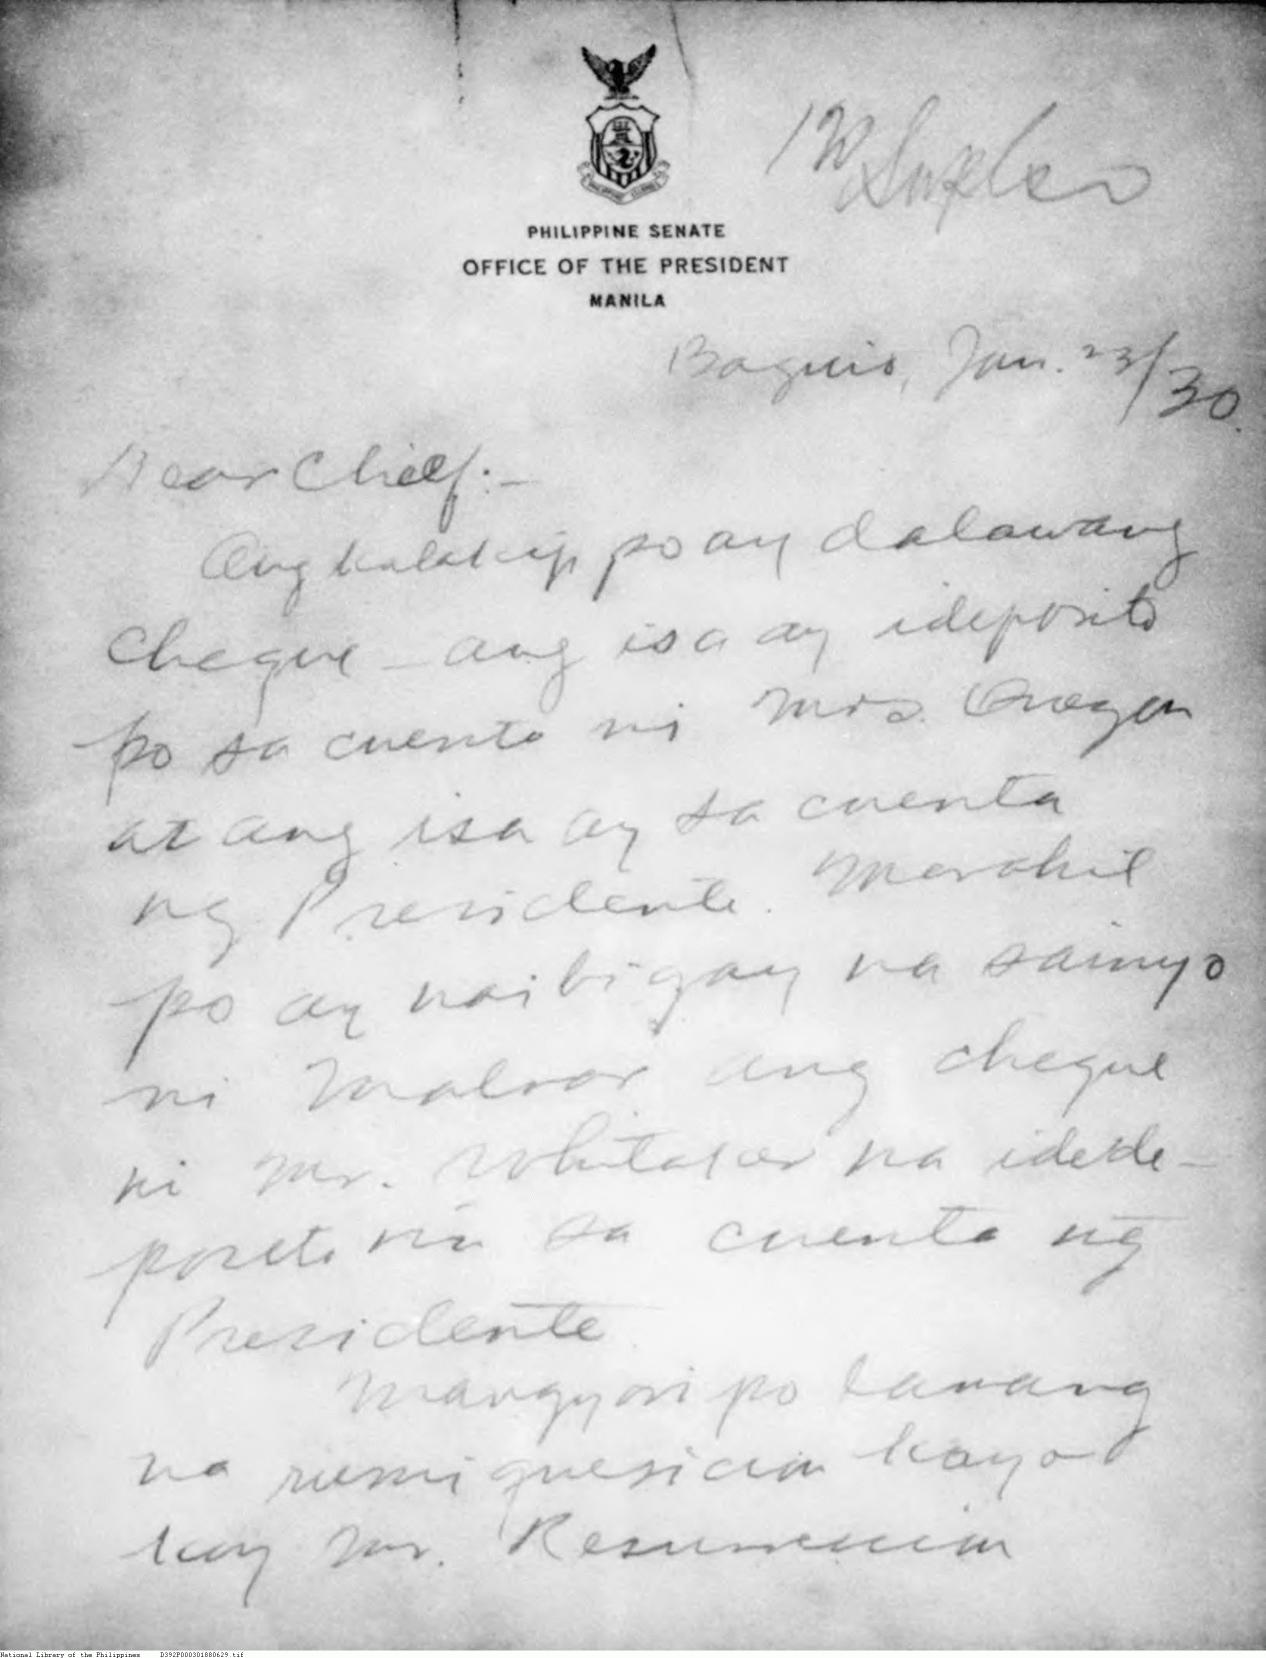 PHILIPPINE SENATE
OFFICE OF THE PRESIDENT
MANILA
Baguio, Jan. 23/30.
Dear Chief:-
Ang kalakip po ay dalawang
cheque - ang isa ay ideposito
po sa cuenta ni Mrs.
at ang isa ay sa cuenta
ng Presidente. Marahil
po ay naibigay na sainyo
ni Malvar ang cheque
ni Mr. Whitaker na
sa cuenta ng
Presidente
Mangyari po lamang
na kayo
kay Mr. Resurreccion
National Library of the Philippines D392P000301880629.tif